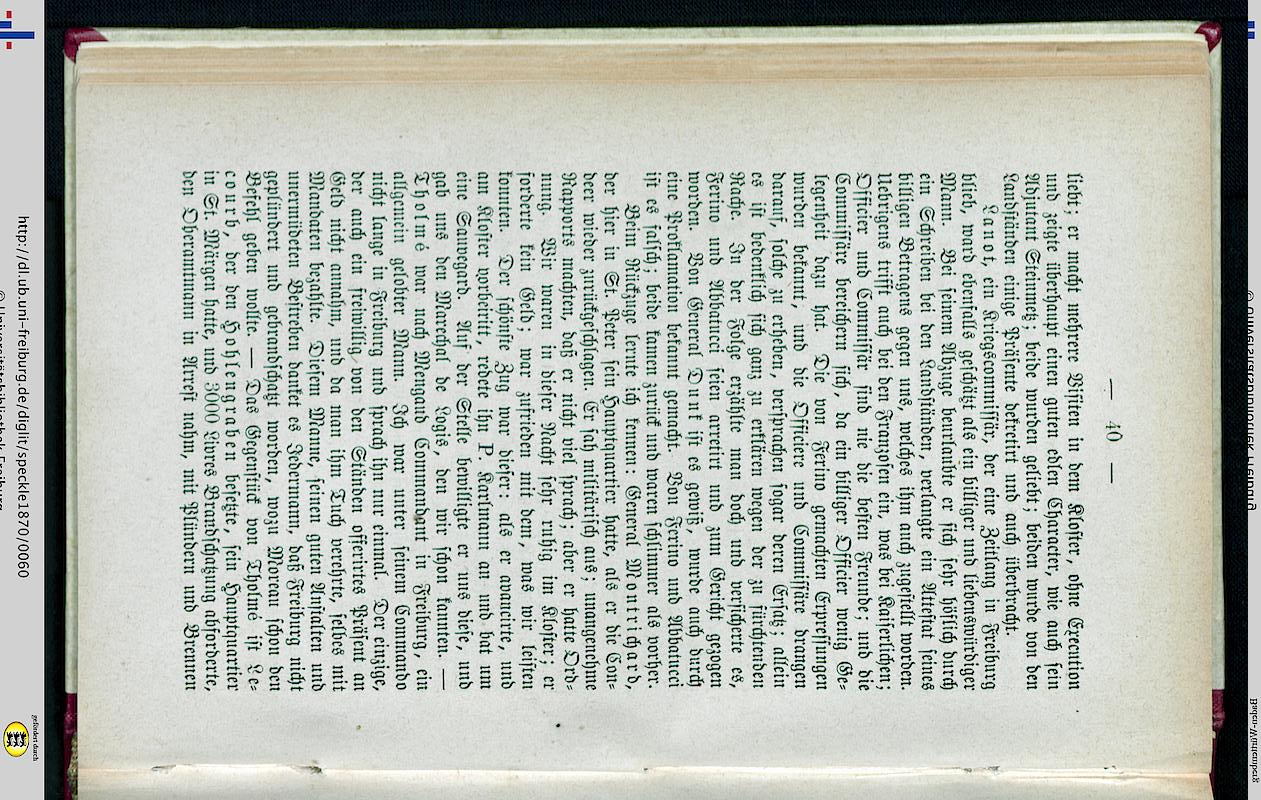 — 40 —
liebt; er macht mehrere Visiten in dem Kloster, ohne Execution
und zeigte überhaupt einen guten edlen Character, wie auch sein
Adjutant Steinmetz; beide wurden geliebt; beiden wurde von den
Landständen einige Präsente dekretirt und auch überbracht.
Lanot, ein Kriegscommissär, der eine Zeitlang in Freiburg
blieb, ward ebenfalls geschätzt als ein billiger und liebenswürdiger
Mann. Bei seinem Abzuge beurlaubte er sich sehr höflich durch
ein Schreiben bei den Landständen, verlangte ein Attestat seines
billigen Betragens gegen uns, welches ihm auch zugestellt worden.
Uebrigens trifft auch bei den Franzosen ein, was bei Kaiserlichen;
Officier und Commissär sind nie die besten Freunde; und die
Commissäre bereichern sich, da ein billiger Officier wenig Ge-
legenheit dazu hat. Die von Ferino gemachten Erpressungen
wurden bekannt, und die Officiere und Commissäre drangen
darauf, solche zu erheben, versprachen sogar deren Ersatz; allein
es ist bedenklich sich ganz zu erklären wegen der zu fürchtenden
Rache. In der Folge erzählte man doch und versicherte es,
Ferino und Abbatucci seien arretirt und zum Gericht gezogen
worden. Von General Dunk ist es gewiß, wurde auch durch
eine Proklamation bekannt gemacht. Von Ferino und Abbatucci
ist es falsch; beide kamen zurück und waren schlimmer als vorher.
Beim Rückzuge lernte ich kennen: General Montrichard,
der hier in St. Peter sein Hauptquartier hatte, als er die Con-
deer wieder zurückgeschlagen. Er sah militärisch aus; unangenehme
Rapports machten, daß er nicht viel sprach; aber er hatte Ord-
nung. Wir waren in dieser Nacht sehr ruhig im Kloster; er
forderte kein Geld; war zufrieden mit dem, was wir leisten
konnten. Der schönste Zug war dieser: als er avancirte, und
am Kloster vorbeiritt, redete ihn P. Karlmann an und bat um
eine Sauvegard. Auf der Stelle bewilligte er uns diese, und
gab uns den Marechal de Logis, den wir schon kannten. —
Tholmé war nach Mengaud Commandant in Freiburg, ein
allgemein gelobter Mann. Ich war unter seinem Commando
nicht lange in Freiburg und sprach ihn nur einmal. Der einzige,
der auch ein freiwillig von den Ständen offerirtes Präsent an
Geld nicht annahm, und da man ihm Tuch verehrte, selbes mit
Mandaten bezahlte. Diesem Manne, seinen guten Anstalten und
unermüdeten Bestreben dankt es Jedermann, daß Freiburg nicht
geplündert und gebrandschatzt worden, wozu Moreau schon den
Befehl geben wollte. — Das Gegenstück von Tholmé ist Le-
courb, der den Hohlengraben besetzte, sein Hauptquartier
in St. Märgen hatte, und 3000 Livres Brandschatzung abforderte,
den Oberamtmann in Arrest nahm, mit Plündern und Brennen
http://dl.ub.uni-freiburg.de/diglit/speckle1870/0060
© Universitätsbibliothek Freiburg
gefördert durch